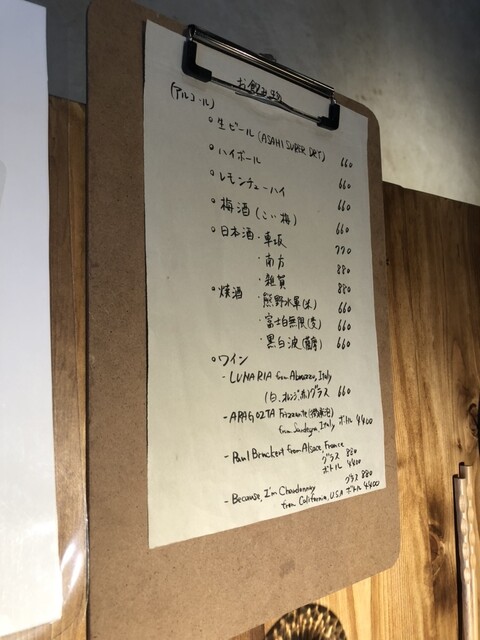 お飲み物
(アルコール)
○生ビール (ASAHI SUPER DRY) 660
○ハイボール 660
○レモンチューハイ 660
○梅酒 (こい梅) 660
○日本酒・車坂 770
・南方 880
・雑賀 880
○焼酎・熊野水軍(米) 660
・富士白無限(麦) 660
・黒白波(薩摩) 660
○ワイン
- LUNARIA from Abruzzo, Italy
(白、オレンジ、赤)グラス 660
- ARAGOSTA Frizzante(微発泡)
from Sardegna, Italy ボトル 4400
- Paul Bruckert from Alsace, France
グラス 880
ボトル 4400
- Because, I'm Chardonnay グラス 880
from California, U.S.A ボトル 4400